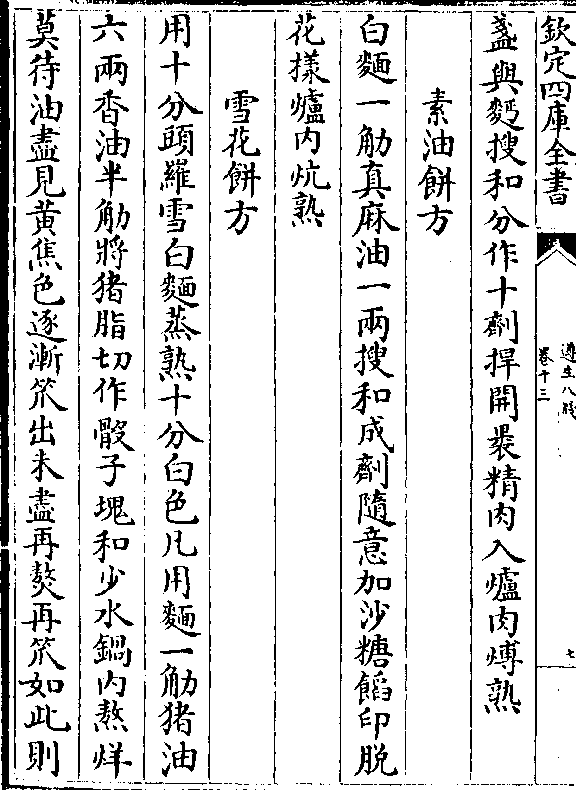 欽定四庫全書
遵生八牋
卷十三
七
盞與麫搜和分作十劑捍開褁精肉入爐内煿熟
素油餅方
白麵一觔真麻油一兩搜和成劑隨意加沙糖餡印脫
花樣爐内炕熟
雪花餅方
用十分頭羅雪白麵蒸熟十分白色凡用麵一觔猪油
六兩香油半觔將猪脂切作骰子塊和少水鍋内熬烊
莫待油盡見黄焦色逐漸笊出未盡再熬再笊如此則